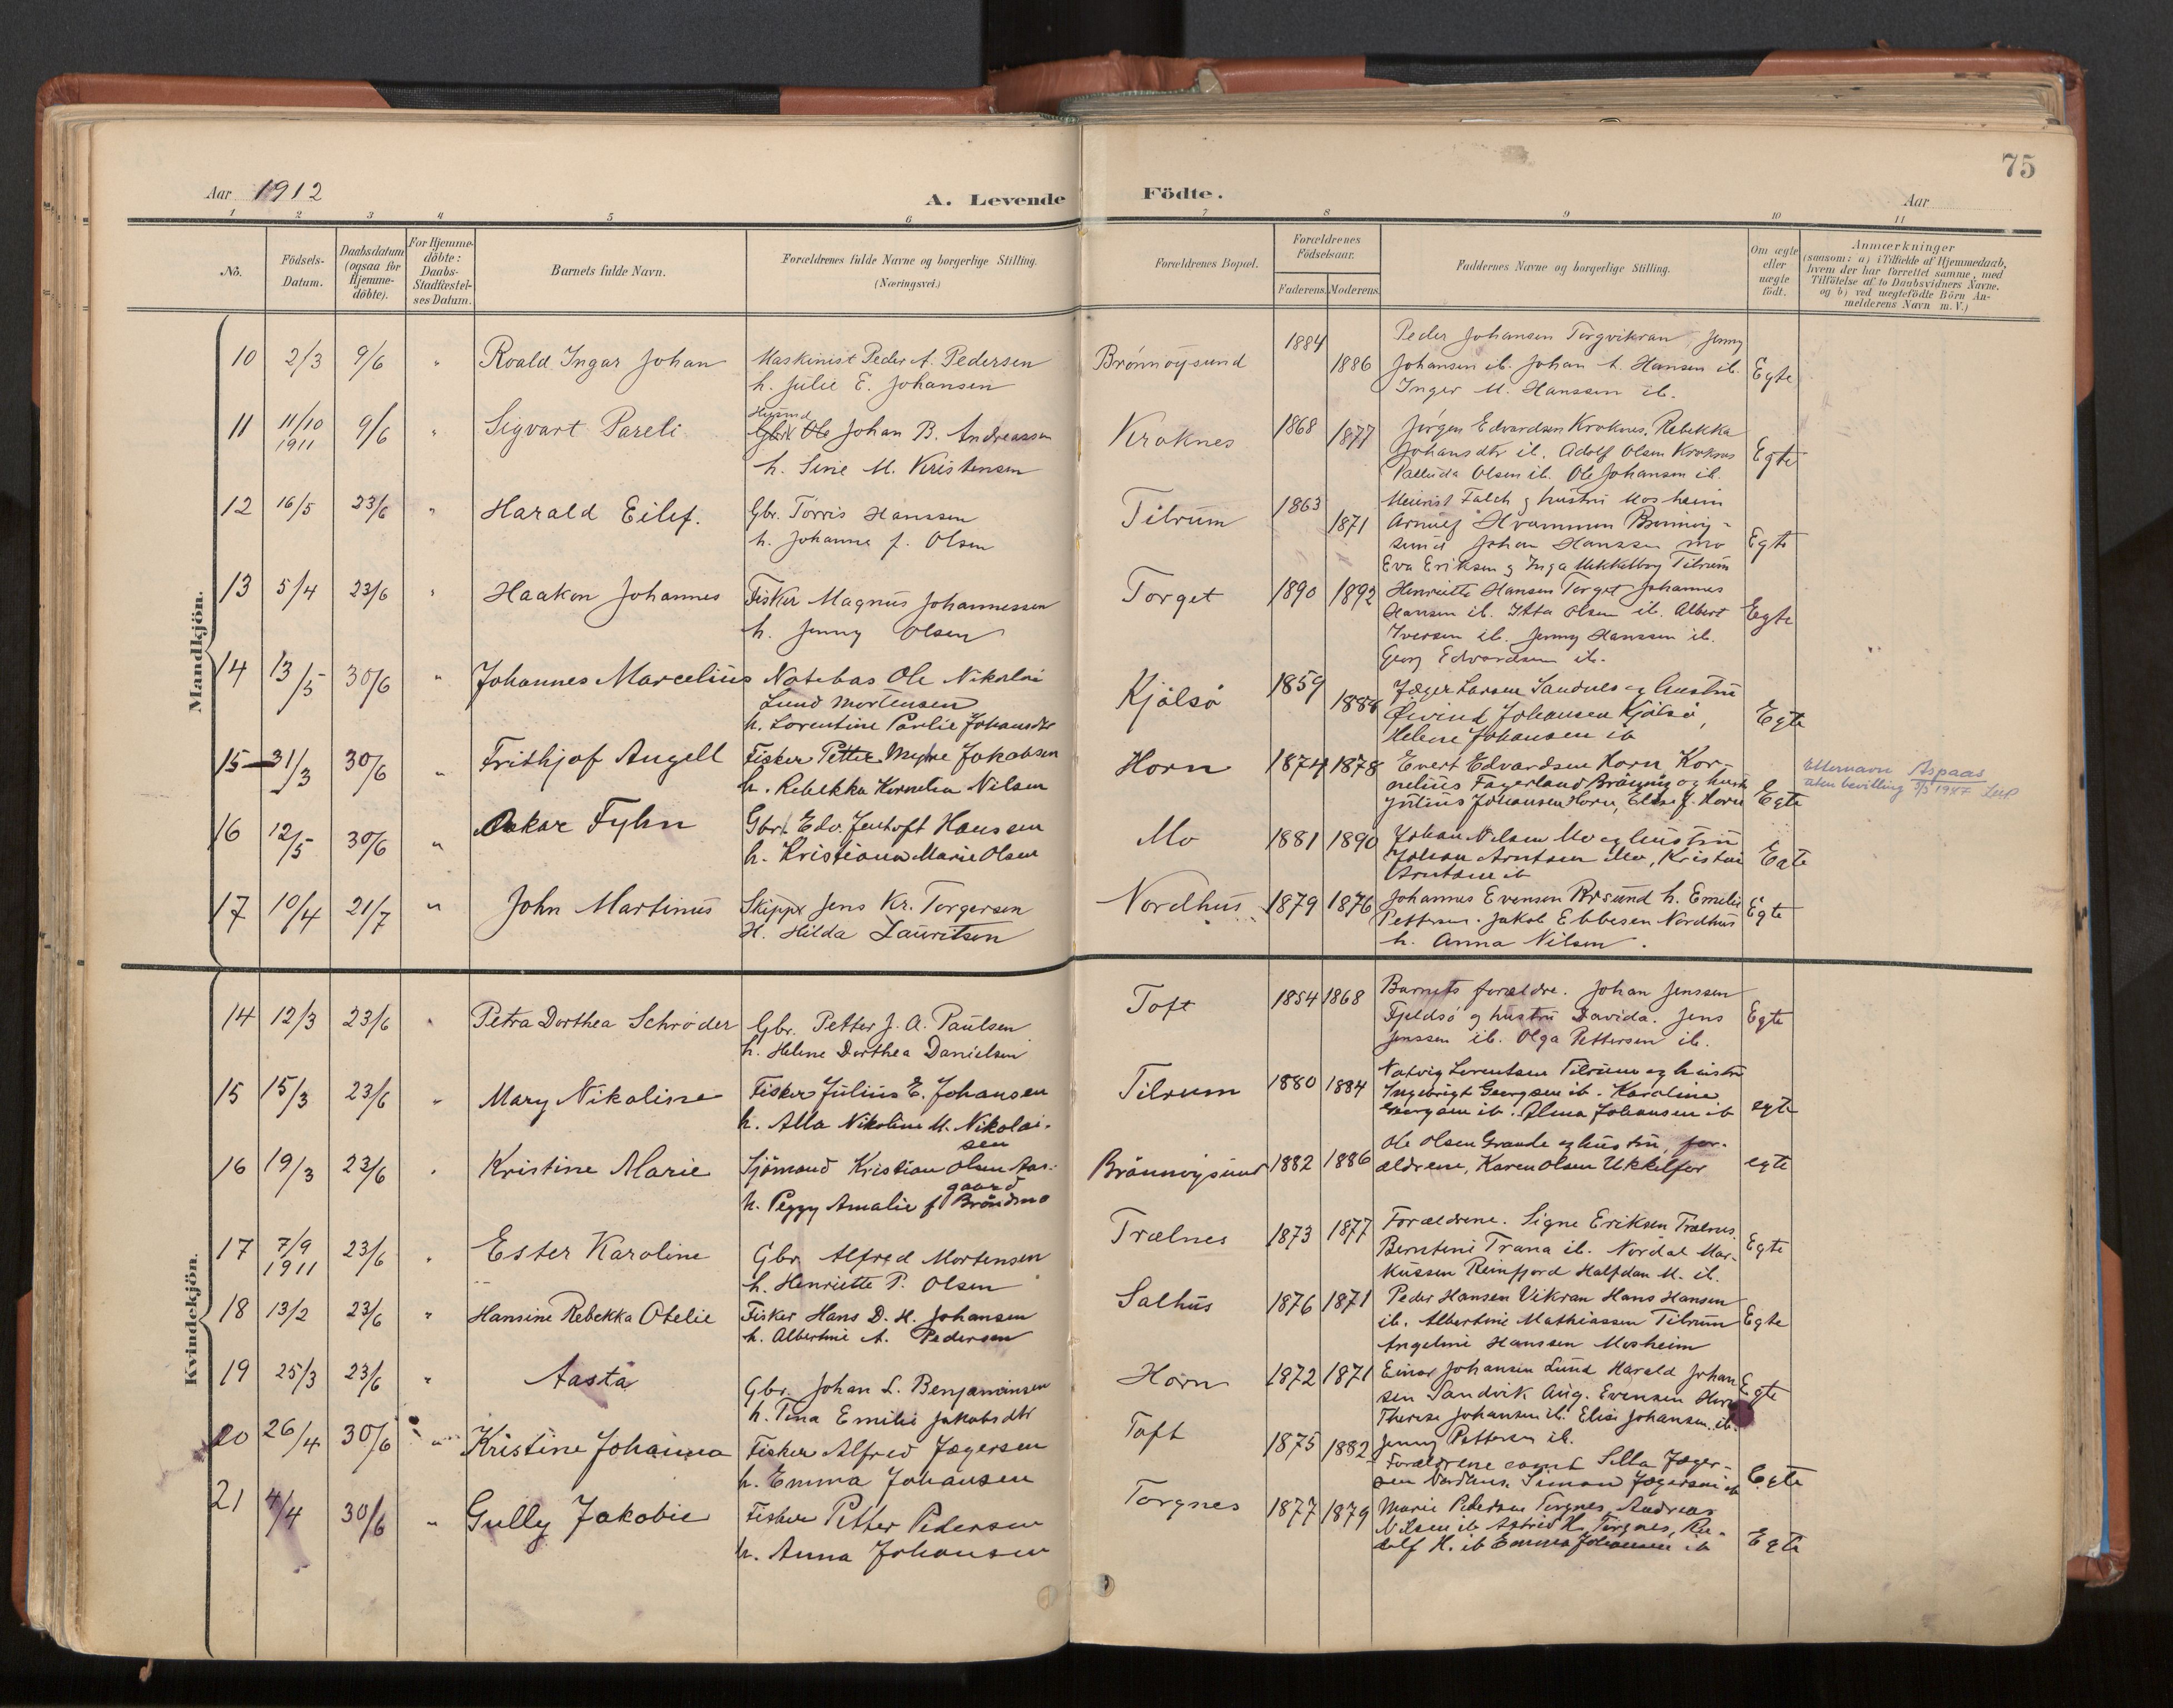 75
Aar 1912
A. Levende Födte.
Aar
1 2 3 4 5 6 7 8 9 10 11
No.
Födsels-
Datum.
Daabsdatum
(ogsaa for
Hjemme-
döbte).
For Hjemme-
döbte:
Daabs-
Stadfæstel-
ses Datum.
Barnets fulde Navn.
Forældrenes fulde Navne og borgerlige Stilling.
(Næringsvei.)
Forældrenes Bopæl.
Forældrenes
Födselsaar.
Faderens. Moderens.
Faddernes Navne og borgerlige Stilling.
Om ægte
eller
uægte
födt.
Anmærkninger
(saasom: a) i Tilfælde af Hjemmedaab,
hvem der har forrettet samme, med
Tilföielse af to Daabsvidners Navne.
og b) ved uægtefödte Börn An-
melderens Navn m. V.)
Mandkjön.
10 2/3 9/6 " Roald Ingar Johan
Maskinist Peder A. Pedersen
h. Julie E. Johansen
Brønnøysund 1884 1886
Peder Johansen Torgvikran, Jenny
Johansen ib. Johan A. Hansen ib.
Inger M. Hanssen ib.
Egte
11 11/10 1911 9/6 " Sigvart Pareli
Husmd
Gbr. Ole Johan B. Andreassen
h. Sine M. Kristensen
Kroknes 1868 1877
Jørgen Edvardsen Kroknes, Rebekka
Johansdtr ib. Adolf Olsen Kroknes
Palluda Olsen ib. Ole Johansen ib.
Egte
12 16/5 23/6 " Harald Eilef.
Gbr. Tørris Hanssen
h. Johanna J. Olsen
Tilrum 1863 1871
Meierist Falch og hustru Mosheim
Arnulf Hvammen Brønnøy-
sund Johan Hanssen Mo
Eva Eriksen og Inga Tilrum
Egte
13 5/4 23/6 " Haakon Johannes
Fisker Magnus Johannessen
h. Jenny Olsen
Torget 1890 1892
Henriette Hansen Torget Johannes
Hansen ib. Olsen ib. Albert
Iversen ib. Jenny Hanssen ib.
Georg Edvardsen ib.
Egte
14 13/5 30/6 " Johannes Marcelius
Notebas Ole Nikolai
Lund Mortensen
h. Lorentine Paulie Johansdtr
Kjølsø 1859 1884
Jæger Larsen Sandnes og hustru
Øivind Johansen Kjølsø,
Helene Johansen ib
Egte
15 31/3 30/6 " Frithjof Angell
Fisker Petter Meyer Jakobsen
h. Rebekka Kornelia Nilsen
Horn 1874 1878
Evert Edvardsen Horn Kor-
nelius Fagerland Brønnøy og hustr
Julius Johansen Horn, Elise J. Horn
Egte
Etternavn Aspaas
uten bevilling 3/3 1947
16 12/5 30/6 " Oskar Fyhn
Gbr. Edv. Jentoft Hanssen
h. Kristiana Marie Olsen
Mo 1881 1890
Johan Nilsen Mo og hustru
Johan Arntsen Mo, Kristine
Arntsen ib
Egte
17 10/4 21/7 " John Martinus
Skipper Jens Kr. Torgersen
H. Hilda Lauritsen
Nordhus 1879 1876
Johannes Evensen Brsund h. Emilie
Pettersen. Jakob Ebbesen Nordhus
h. Anna Nilsen.
Egte
Kvindekjön.
14 12/3 23/6 " Petra Dorthea Schrøder
Gbr. Petter J. A. Paulsen
h. Helene Dorthea Danielsen
Toft 1854 1868
Barnets forældre. Johan Jenssen
Fjeldsø og hustru Davida. Jens
Jenssen ib. Olga Pettersen ib.
Egte
15 15/3 23/6 " Mary Nikoline
Fisker Julius E. Johansen
h. Alla Nikoline M. Nikolai-
sen
Tilrum 1880 1884
Natvig Lorentsen Tilrum og hustru
Ingebrigt Georgsen ib. Karoline
Georgsen ib. Alma Johansen ib
egte
16 19/3 23/6 " Kristine Marie
Sjømand Kristian Olsen Aas-
gaard
h. Peggy Amalie f Brøndmo
Brønnøysund 1882 1886
Ole Olsen Grande og hustru, for-
ældrene, Karen Olsen
egte
17 7/9 1911 23/6 " Ester Karoline
Gbr. Alfred Mortensen
h. Henriette P. Olsen
Trælnes 1873 1877
Forældrene. Signe Eriksen Trælnes
Berntine Trana ib. Nordal Mar-
kussen Reinfjord Halfdan M. ib.
Egte
18 13/2 23/6 " Hansine Rebekka Otelie
Fisker Hans D. H. Johansen
h. Albertine A. Pedersen
Salhus 1876 1871
Peder Hansen Vikran Hans Hansen
ib. Albertine Mathiassen Tilrum
Angeline Hanssen Mosheim
Egte
19 25/3 23/6 " Aasta
Gbr. Johan L. Benjaminsen
h. Tina Emilie Jakobsdtr
Horn 1872 1871
Einar Johansen Lund Harald Johan
sen Sandvik Aug. Evensen Horn
Therese Johansen ib. Elise Johansen ib.
Jenny Pettersen ib.
Egte
20 26/4 30/6 " Kristine Johanna
Fisker Alfred Jægersen
h. Emma Johansen
Toft 1875 1882
Forældrene samt Silla Jæger-
sen Nordhus, Simon Jægersen ib
Egte
21 4/4 30/6 " Gully Jakobie
Fisker Petter Pedersen
h. Anna Johansen
Torgnes 1877 1879
Marie Pedersen Torgnes, Andreas
Nilsen ib Astrid H. Torgnes, Ru-
dolf H. ib Emma Johansen ib
Egte